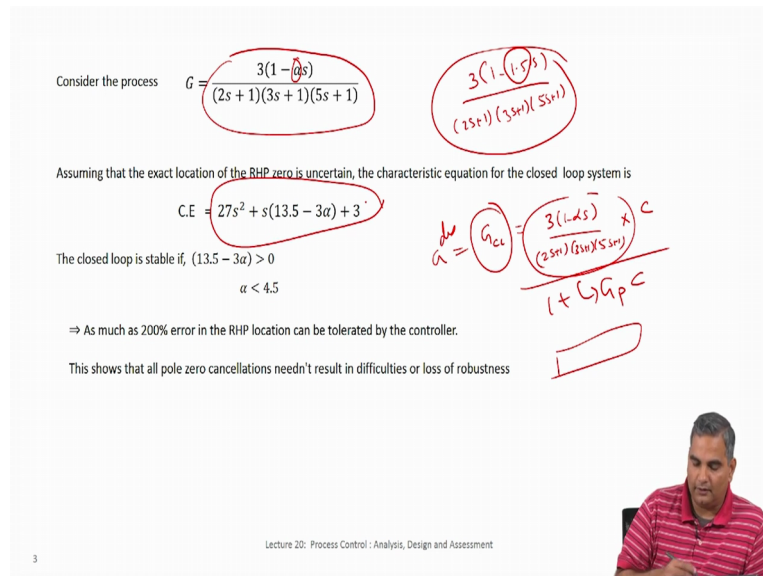 Consider the process G = 3(1 − αs) / (2s + 1)(3s + 1)(5s + 1)
3(1 - 1.5s) / (2s+1)(3s+1)(5s+1)
Assuming that the exact location of the RHP zero is uncertain, the characteristic equation for the closed loop system is
C.E = 27s² + s(13.5 − 3α) + 3
G_CL = 3(1-αs) / (2s+1)(3s+1)(5s+1) × C
1 + G_p C
The closed loop is stable if, (13.5 – 3α) > 0
α < 4.5
⇒ As much as 200% error in the RHP location can be tolerated by the controller.
This shows that all pole zero cancellations needn't result in difficulties or loss of robustness
Lecture 20: Process Control : Analysis, Design and Assessment
3